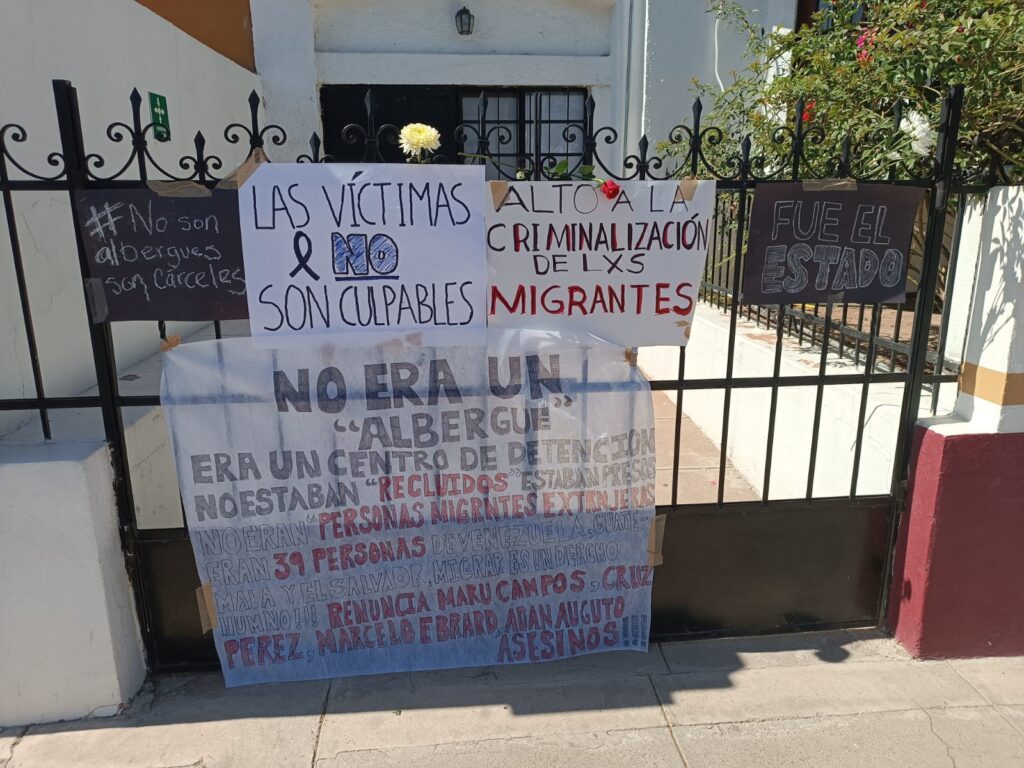 #No son
albergues
son cárceles
LAS VÍCTIMAS
NO
SON CULPABLES
ALTO A LA
CRIMINALIZACIÓN
DE LXS
MIGRANTES
FUE EL
ESTADO
NO ERA UN
"ALBERGUE"
ERA UN CENTRO DE DETENCION
NO ESTABAN "RECLUIDOS" ESTABAN PRESOS
NO ERAN "PERSONAS MIGRANTES EXTRANJERAS
ERAN 39 PERSONAS DE VENEZUELA, GUATE-
MALA Y EL SALVADOR, MIGRAR ES UN DERCHO
HUMNO!!! RENUNCIA MARU CAMPOS, CRUZ
PEREZ, MARCELO EBRARD, ADAN AUGUTO
ASESINOS!!!